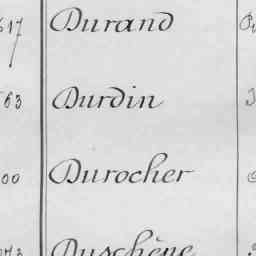 617 Durand
63 Durdin
00 Durocher
Duschène